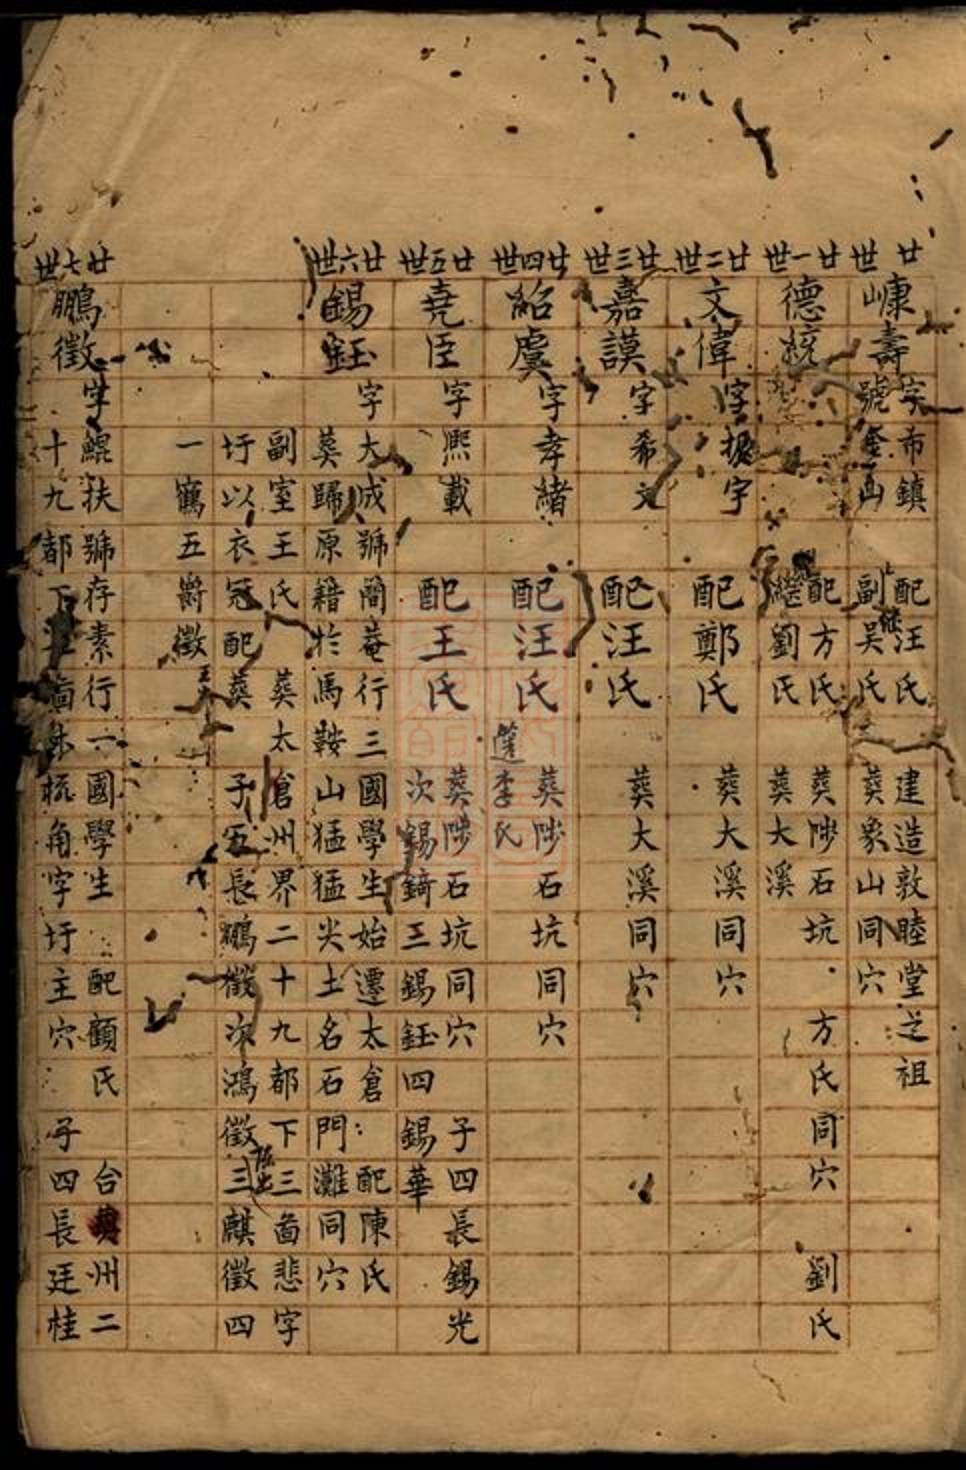 廿世
嵻壽
字布鎮
號金山
配汪氏 建造敦睦堂之祖
副吳氏 葬象山同穴
廿一世
德統
配方氏 葬陟石坑 方氏同穴 劉氏
繼劉氏 葬大溪
廿二世
文偉
字振宇
配鄭氏
葬大溪同穴
廿三世
嘉謨
字希文
配汪氏
葬大溪同穴
廿四世
紹虞
字孝緒
配汪氏
葬陟石坑同穴
簉李氏
廿五世
堯臣
字熙載
配王氏
葬陟石坑同穴 子四長錫光
次錫錡三錫鈺四錫華
廿六世
錫鈺
字大成號簡菴行三國學生始遷太倉 配陳氏
葬歸原籍於馬鞍山猛猛尖土名石門灘同穴
副室王氏 葬太倉州界二十九都下三啚悲字
圩以衣冠配葬 子五長鵬徵次鴻徵三麒徵四
一鶴五爵徵
廿七世
鵬徵
字鯤扶號存素行一國學生 配顧氏 合葬州二
十九都下 啚 梳角字圩主穴 子四長廷桂